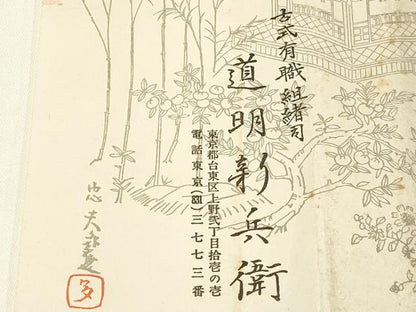 古式有職組紐司
道明新兵衛
東京都台東区上野弐丁目拾壱の壱
電話東京(831)三七七三番
忠夫